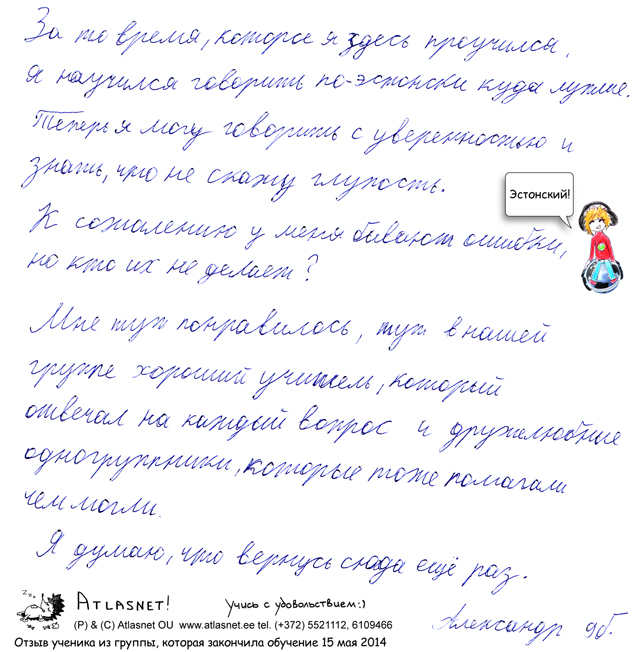 За то время, которое я здесь проучился,
я научился говорить по-эстонски куда лучше.
Теперь я могу говорить с уверенностью и
знать, что не скажу глупость.
К сожалению у меня бывают ошибки,
но кто их не делает?
Эстонский!
Мне тут понравилось, тут в нашей
группе хороший учитель, который
отвечал на каждый вопрос и дружелюбные
одногруппники, которые тоже помагали
чем могли.
Я думаю, что вернусь сюда ещё раз.
Александр 9б.
ATLASNET! Учись с удовольствием:)
(P) & (C) Atlasnet OU www.atlasnet.ee tel. (+372) 5521112, 6109466
Отзыв ученика из группы, которая закончила обучение 15 мая 2014